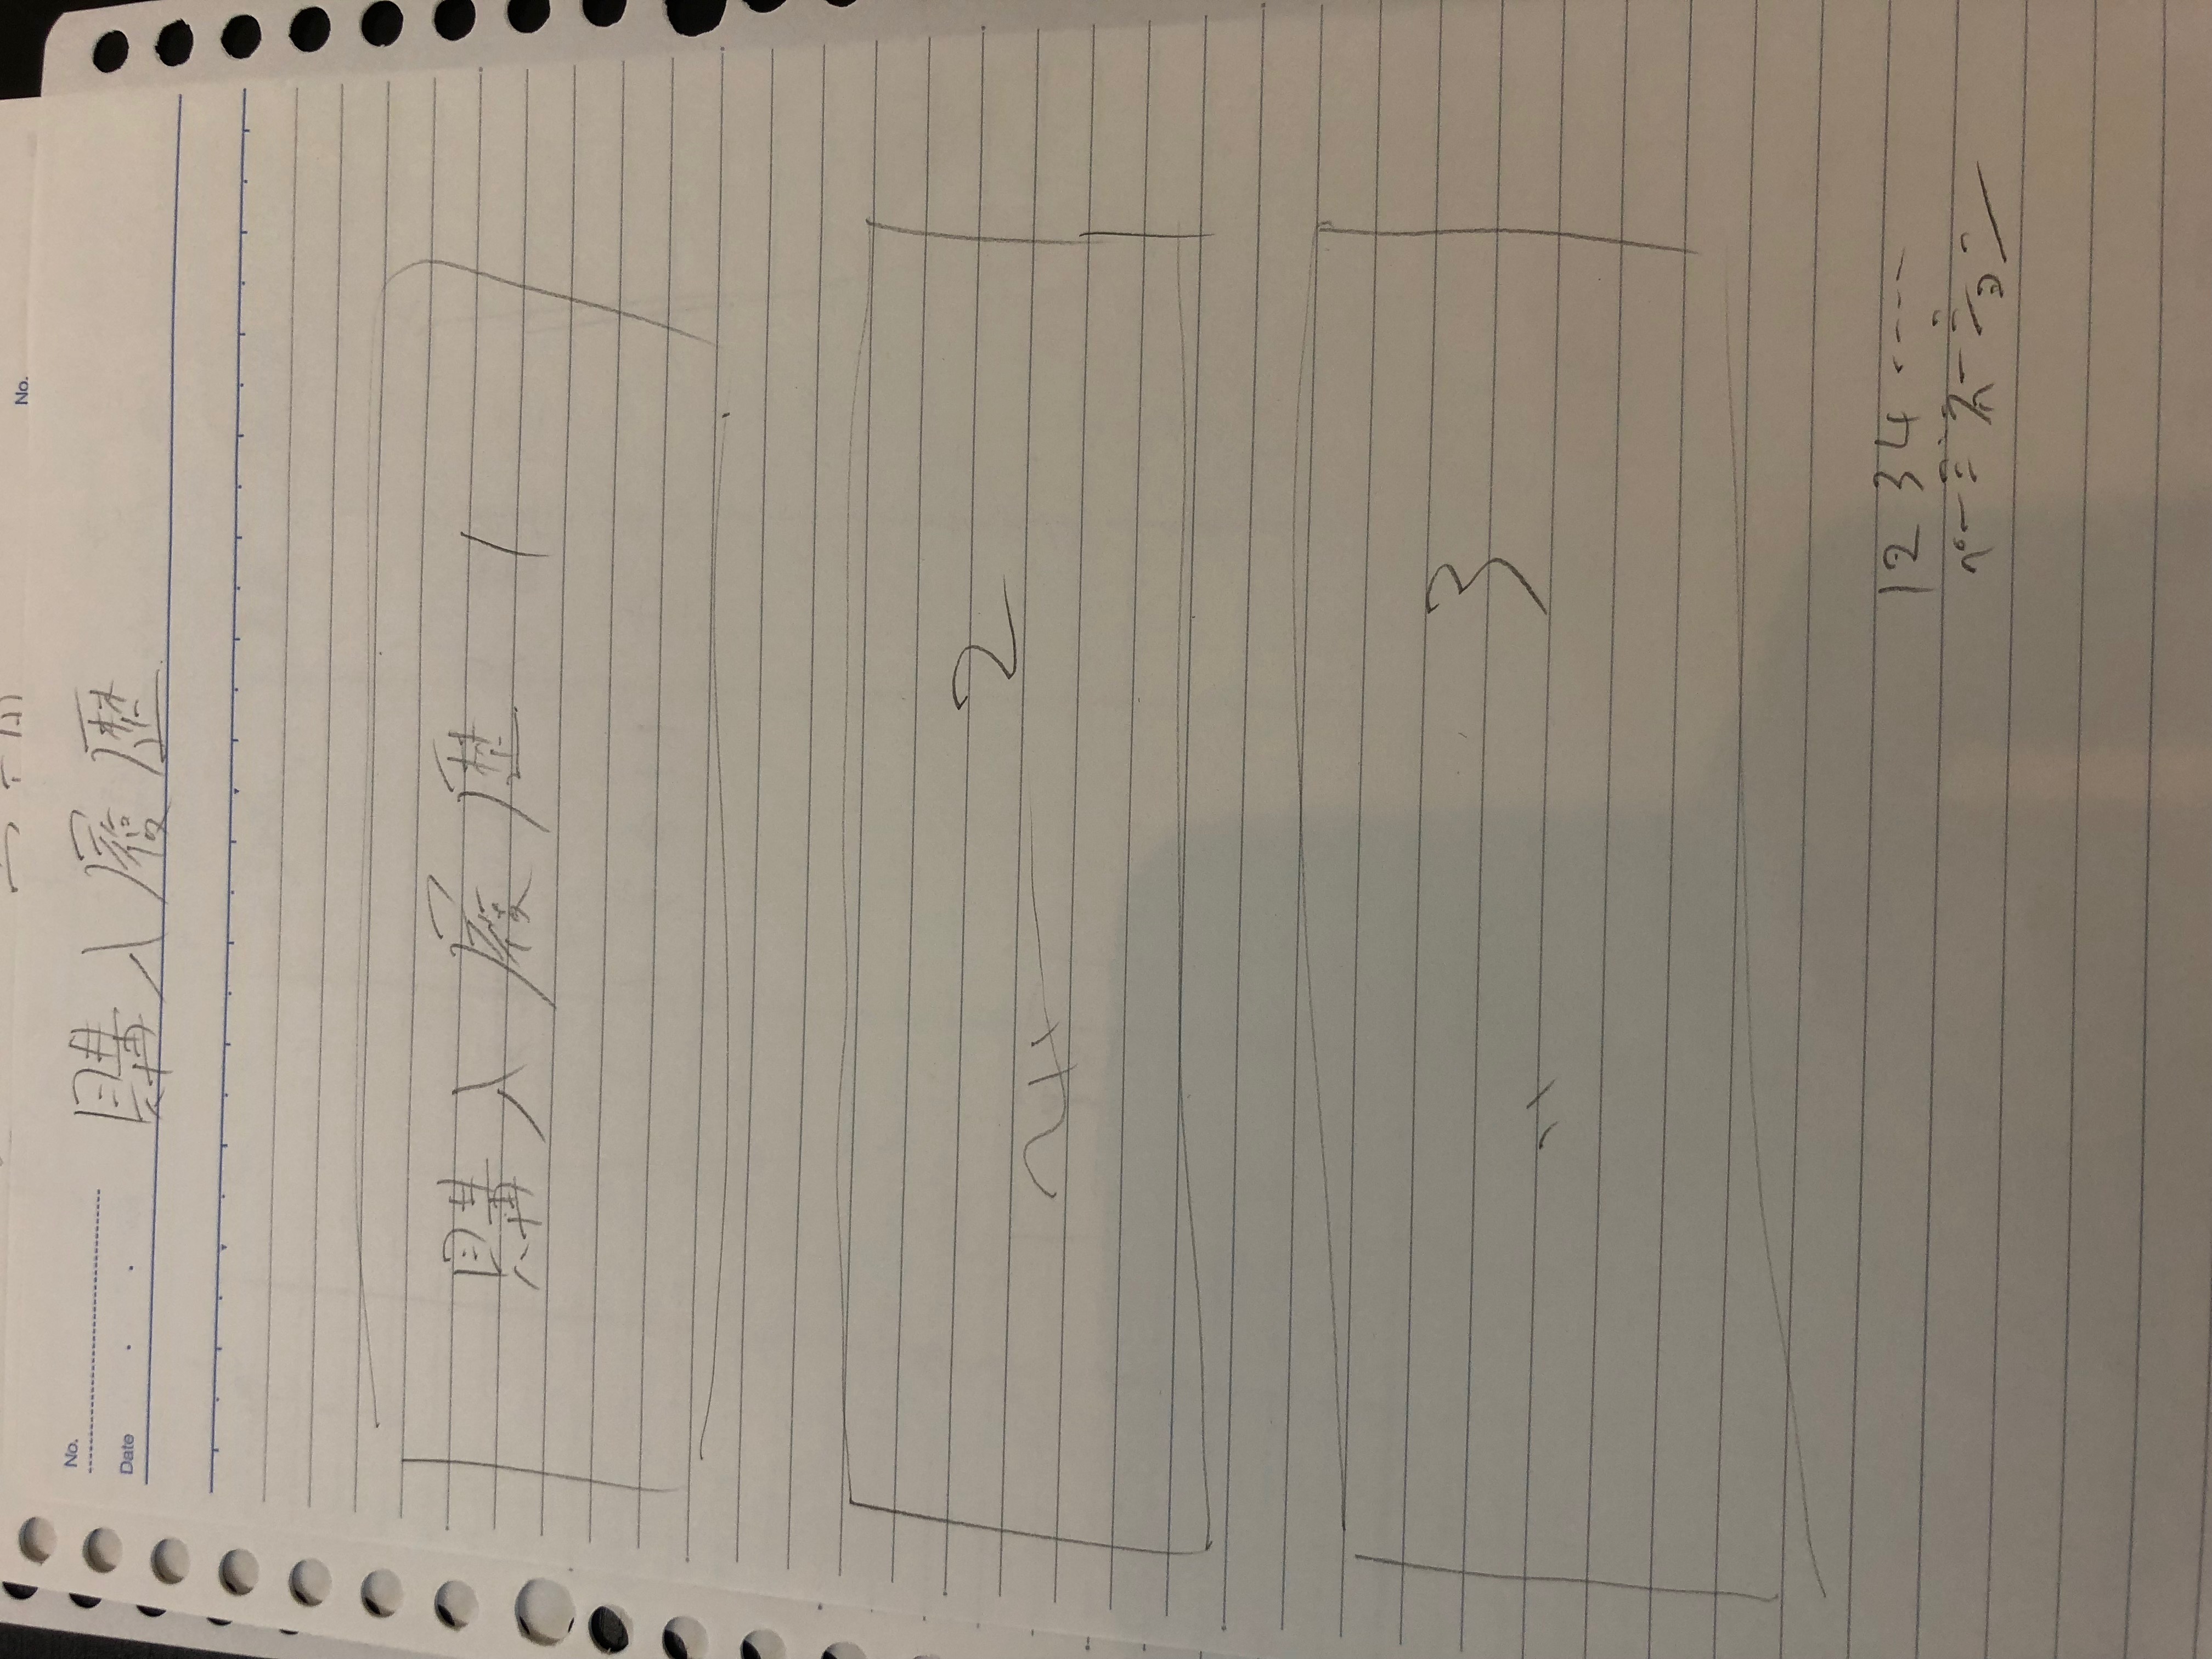 No.
No.
Date
購入履歴
購入履歴 1
2
〃 3
1 2 3 4 ----
ページネーション